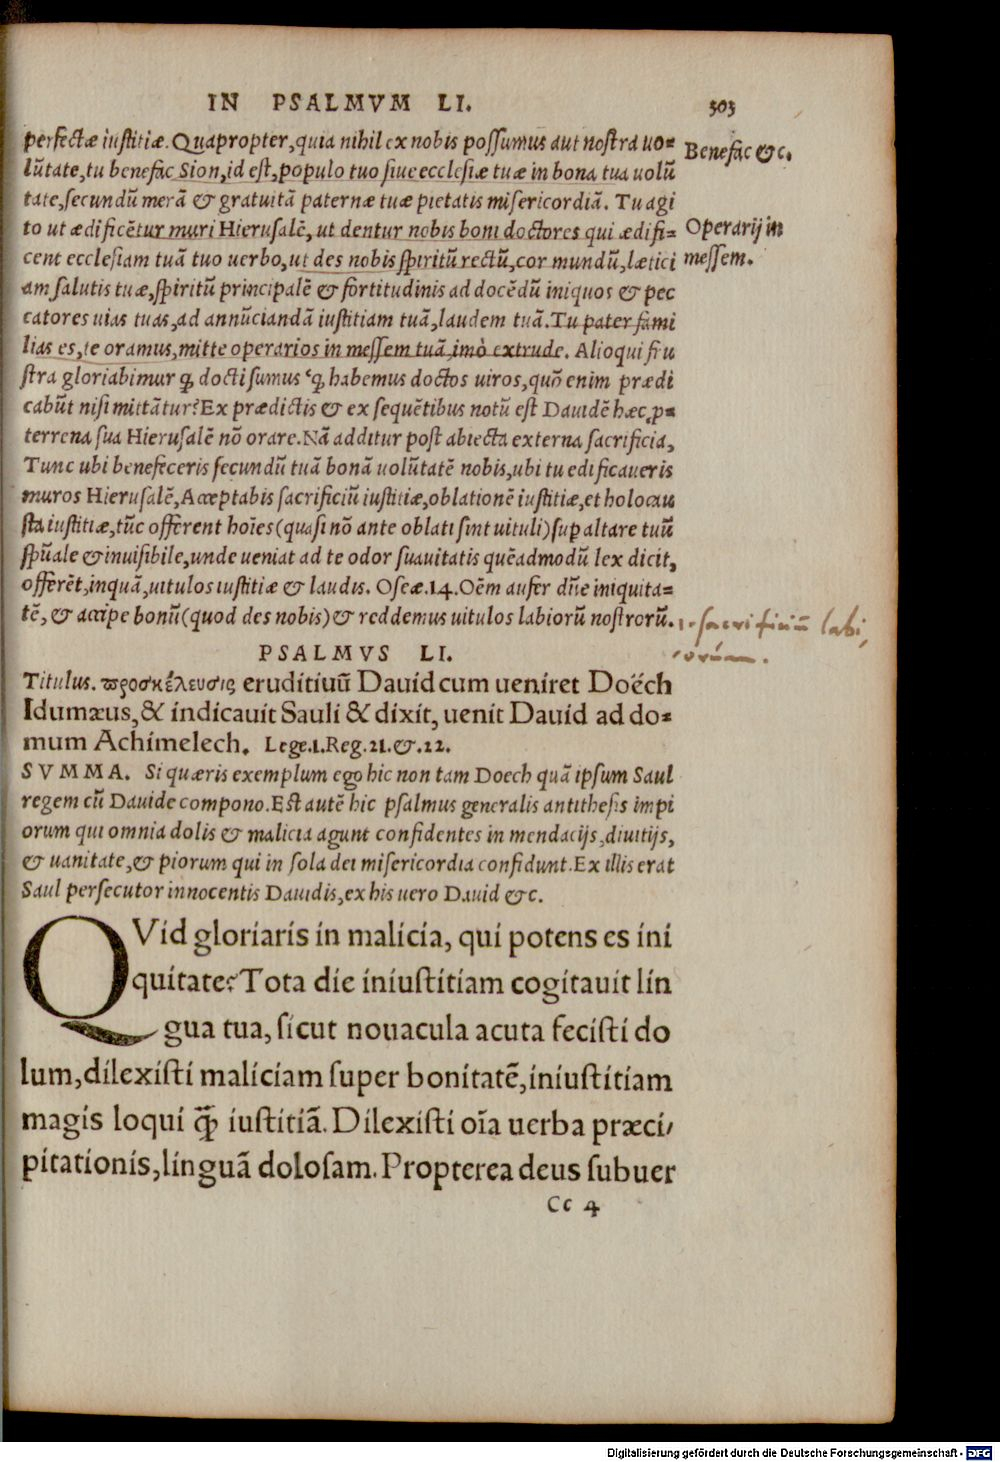 IN PSALMVM LI. 303
perfectæ iustitiæ. Quapropter, quia nihil ex nobis possumus aut nostra uo-
lūtate, tu benefac Sion, id est, populo tuo siue ecclesiæ tuæ in bona tua uolū
Benefac &c.
tate, secundū merā & gratuitā paternæ tuæ pietatis misericordiā. Tu agi
to ut ædificētur muri Hierusalē, ut dentur nobis boni doctores qui ædifi-
Operarij in
cent ecclesiam tuā tuo uerbo, ut des nobis spiritū rectū, cor mundū, lætici
messem.
am salutis tuæ, spiritū principalē & fortitudinis ad docēdū iniquos & pec
catores uias tuas, ad annūciandā iustitiam tuā, laudem tuā. Tu pater fami
lias es, te oramus, mitte operarios in messem tuā, imò extrude. Alioqui fru
stra gloriabimur ꝙ docti sumus ꝙ habemus doctos uiros, quō enim prædi
cabūt nisi mittātur? Ex prædictis & ex sequētibus notū est Dauidē hæc ꝓ-
terrena sua Hierusalē nō orare. Nā additur post abiecta externa sacrificia,
Tunc ubi benefeceris secundū tuā bonā uolūtatē nobis, ubi tu edificaueris
muros Hierusalē, Acceptabis sacrificiū iustitiæ, oblationē iustitiæ, et holocau
sta iustitiæ, tūc offerent hoīes (quasi nō ante oblati sint uituli) suꝑ altare tuū
spūale & inuisibile, unde ueniat ad te odor suauitatis quēadmodū lex dicit,
offerēt, inquā, uitulos iustitiæ & laudis. Oseæ. 14. Oēm aufer dn̄e iniquita-
tē, & accipe bonū (quod des nobis) & reddemus uitulos labiorū nostrorū.
sacrificiū labi
orum.
PSALMVS LI.
Titulus. προσκέλευσις eruditiuū Dauid cum ueniret Doëch
Idumæus, & indicauit Sauli & dixit, uenit Dauid ad do-
mum Achimelech. Lege. 1. Reg. 21. &. 22.
SVMMA. Si quæris exemplum ego hic non tam Doech quā ipsum Saul
regem cū Dauide compono. Est autē hic psalmus generalis antithesis impi
orum qui omnia dolis & malicia agunt confidentes in mendacijs, diuitijs,
& uanitate, & piorum qui in sola dei misericordia confidunt. Ex illis erat
Saul persecutor innocentis Dauidis, ex his uero Dauid &c.
QVid gloriaris in malicia, qui potens es ini
quitate? Tota die iniustitiam cogitauit lin
gua tua, sicut nouacula acuta fecisti do
lum, dilexisti maliciam super bonitatē, iniustitiam
magis loqui q̄ꝫ iustitiā. Dilexisti oīa uerba præci,
pitationis, linguā dolosam. Propterea deus subuer
Cc 4
Digitalisierung gefördert durch die Deutsche Forschungsgemeinschaft - DFG